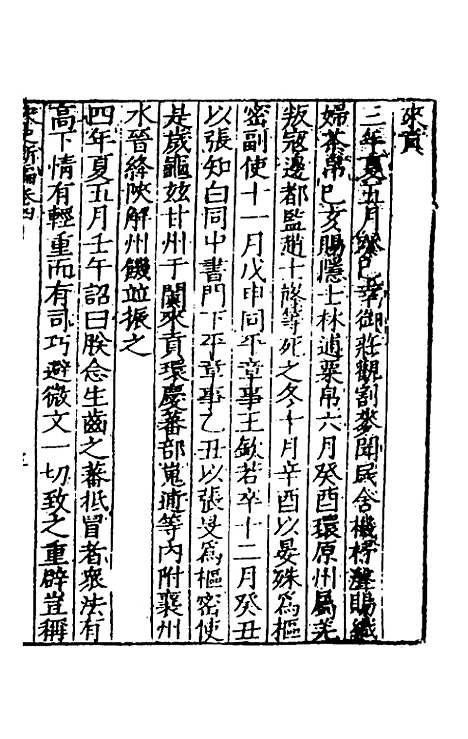 來貢
三年夏五月癸巳幸御莊觀割麥聞民舍機杼聲賜織
婦茶帛巳亥賜隱士林逋粟帛六月癸酉環原州屬羌
叛寇邊都監趙士隆等死之冬十月辛酉以晏殊爲樞
密副使十一月戊申同平章事王欽若卒十二月癸丑
以張知白同中書門下平章事乙丑以張旻爲樞密使
是歲龜兹甘州于闐來貢環慶蕃部嵬逋等內附襄州
水晉絳陝解州饑並振之
四年夏五月壬午詔曰朕念生齒之蕃抵冒者衆法有
高下情有輕重而有司巧避微文一切致之重辟豈稱
宋史新編卷四